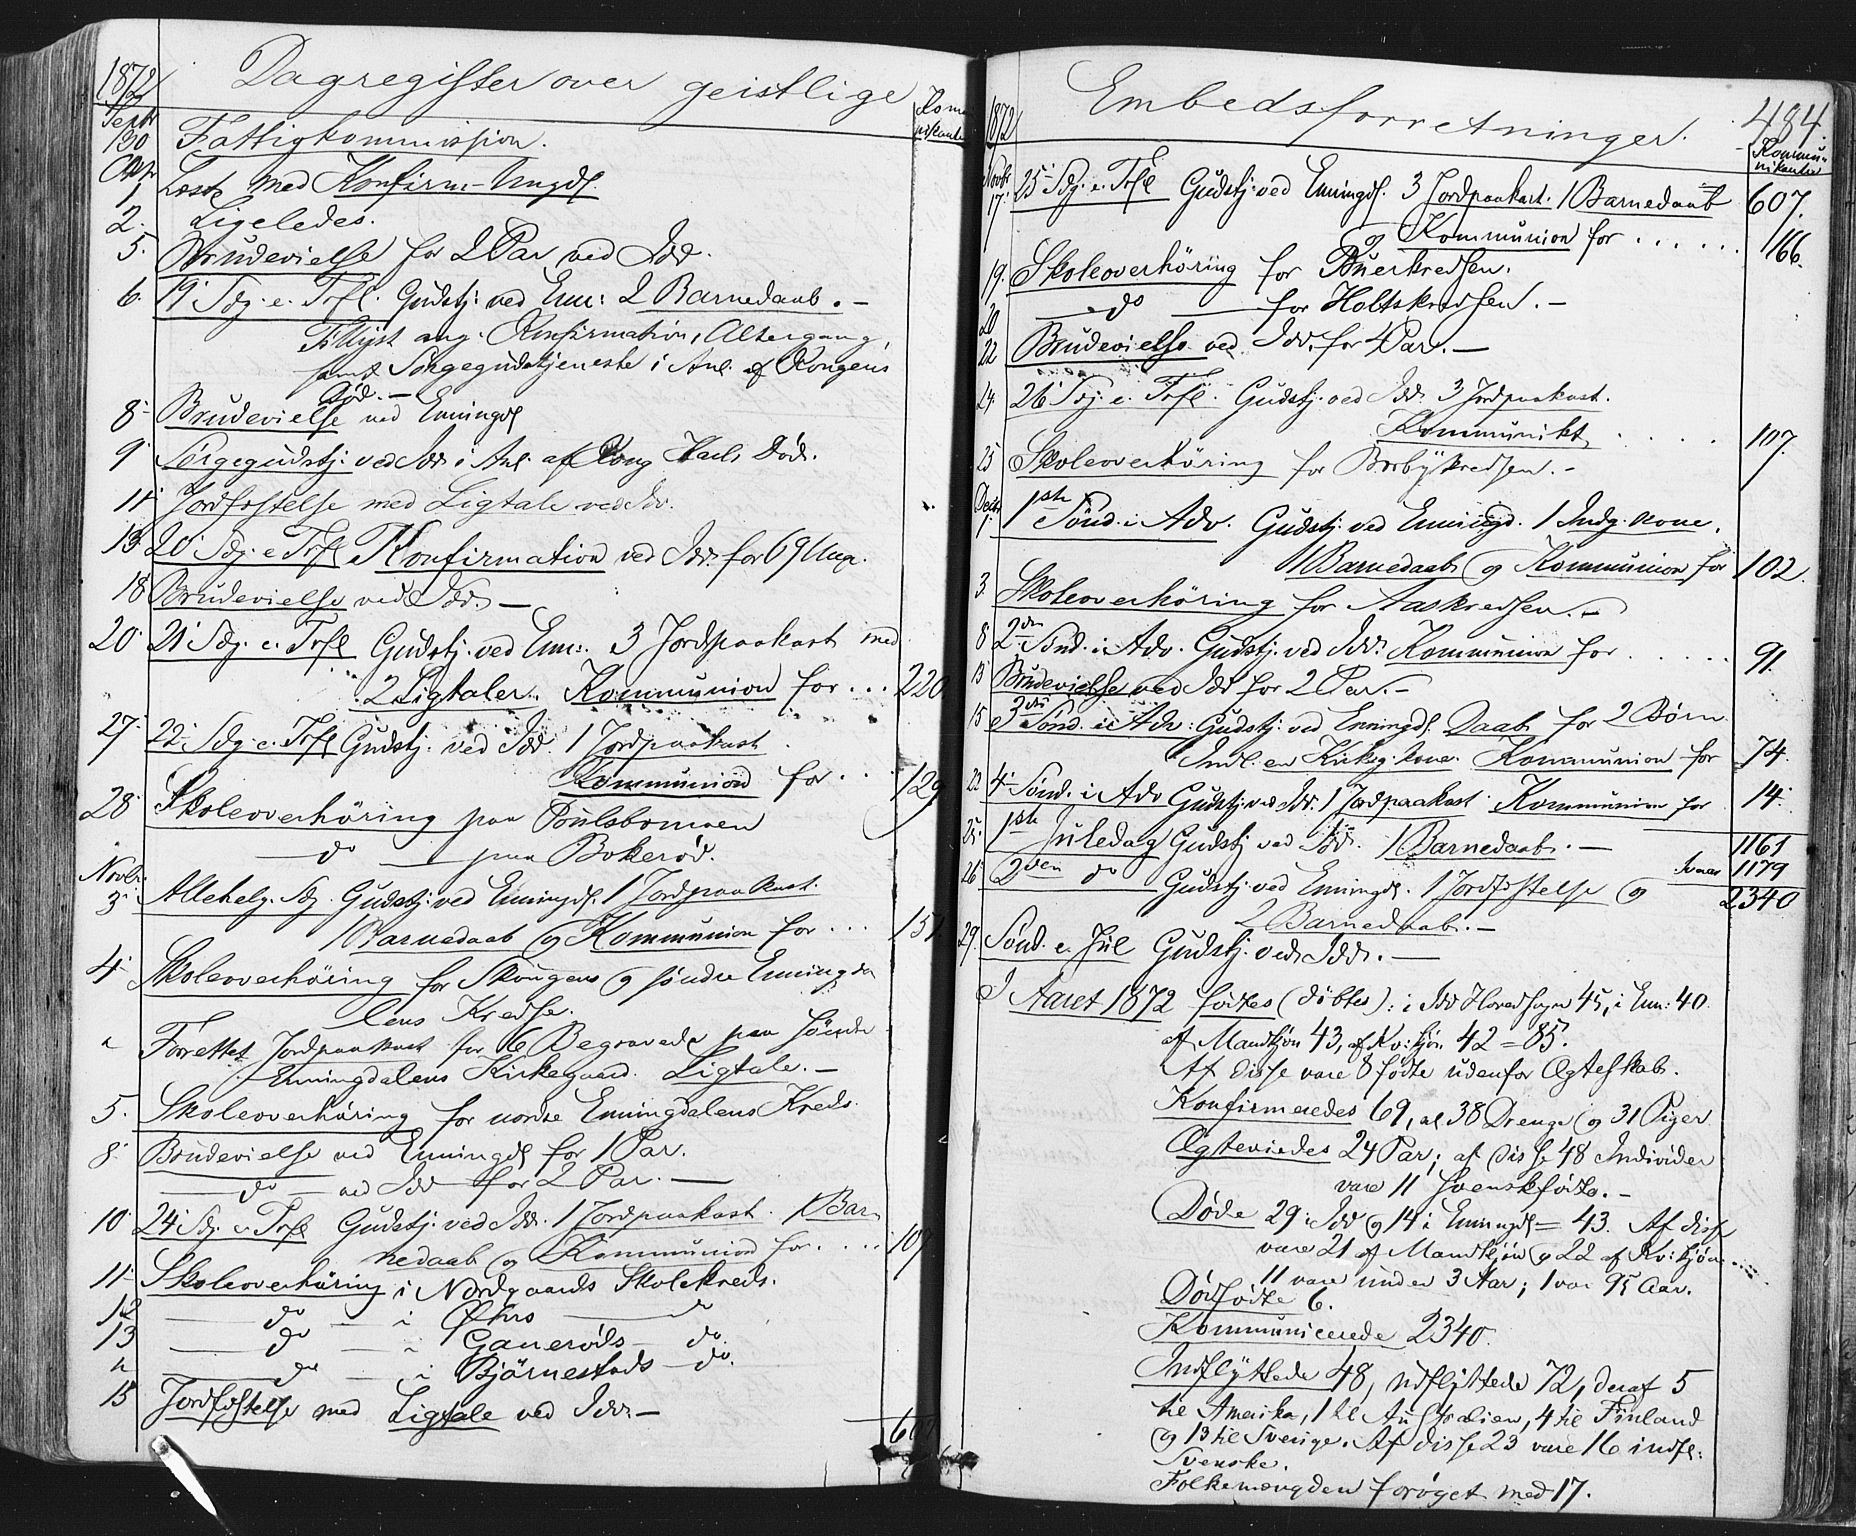 1872
Dagregister over geistlige
Septr
30 Fattigkommission.
Oktr
1 Læst med Konfirm-Ungd.
2. Ligeledes.
5. Brudevielse for 2 Par ved Idd.
6. 19 Sdg. e. Trfl. Gudstj. ved Enn: 2 Barnedaab. –
Tillyst ang. Konfirmation, Altergang,
samt Sørgegudstjeneste i Anl. af Kongens
Død. –
8. Brudevielse ved Enningd
9. Sørgegudstj. ved Idd i Anl. af Kong Karls Død.
11. Jordfæstelse med Ligtale ved Idd.
13. 20 Sdg. e Trfl Konfirmation ved Idd. for 69 Ung.
18 Brudevielse ved Idd. –
20. 21 Sdg. e. Trfl Gudstj. ved Enn: 3 Jordpaakast med
2 Ligtaler. Kommunion for ... 220
27. 22 Sdg. e. Trfl Gudstj. ved Idd. 1 Jordpaakast.
Kommunion for ... 129
28. Skoleoverhöring paa Poulsbomoen
do paa Bokerød.
Novbr.
3. Allehelg. Sdg. Gudstj. ved Enningd. 1 Jordpaakast.
1 Barnedaab og Kommunion for ... 151
4. Skoleoverhöring for Skougens og söndre Enningda
lens Kredse.
" Forrettet Jordpaakast for 6 Begravede paa söndre
Enningdalens Kirkegaard. Ligtale. –
5. Skoleoverhöring for nordre Enningdalens Kreds.
8. Brudevielse ved Enningd for 1 Par.
do – ved Idd for 2 Par. –
10. 24 Sdg. e. Trfl Gudstj. ved Idd. 1 Jordpaakast. 1 Bar
nedaab og Kommunion for .... 107
11. Skoleoverhöring i Nordgaards Skolekreds.
12 do – i Öhrs do
13 do – " Ganeröds – do.
" do – i Björnestads – do.
15 Jordfæstelse med Ligtale ved Idd. –
607
1872
Embedsforretninger.
484.
Kommu-
nikanter
Novbr. 17. 25 Sdg. e. Trfl Gudstj. ved Enningd. 3 Jordpaakast. 1 Barnedaab 607.
og Kommunion for ...... 166.
19. Skoleoverhöring for Buerkredsen.
20 do for Holtskredsen. –
22 Brudevielse ved Idd. for 4 Par. –
24. 26 Sdg. e. Trfl. Gudstj. ved Idd. 3 Jordpaakast.
Kommunikt ..... 107.
25 Skoleoverhöring for Berbykredsen. –
Decbr. 1. 1ste Sönd. i Adv. Gudstj. ved Enningd. 1 Indg. kone,
1 Barnedaab og Kommunion for 102.
3. Skoleoverhöring for Aaskredsen. –
8 2den Sönd. i Adv. Gudstj. ved Idd. Kommunion for ..... 91.
13 Brudevielse ved Idd for 2 Par. –
15 3die Sönd. i Adv. Gudstj. ved Enningd. Daab for 2 Börn
Indl. en Kirkeg. kone. Kommunion for 74.
22 4. Sönd. i Adv Gudstj. ved Idd. 1 Jordpaakast. Kommunion for 14.
25. 1ste Juledag Gudstj ved Idd. 1 Barnedaab. – 1161
26 2den do Gudstj. ved Enningd. 1 Jordfæstelse og 1179
2 Barnedaab. – 2340
29. Sönd. e. Jul Gudstj. ved Idd. –
I Aaret 1872 fødtes (døbtes): i Idd Hovedsogn 45, i Enn: 40.
af Mandkjön 43, af Kv:kjön 42 = 85.
Af disse vare 8 födte udenfor Ægteskab.
Konfirmeredes 69, al. 38 Drenge og 31 Piger
Ægteviedes 24 Par; af disse 48 Individer
vare 11 svenskfödte. –
Döde 29 i Idd og 14 i Enningd = 43. Af disse
vare 21 af Mandkjön og 22 af Kv:kjön ....
11 vare under 3 Aar; 1 var 95 Aar.
Dödfödte 6.
Kommunicerede 2340.
Indflyttede 48, udflyttede 72, deraf 5
til Amerika, 1 til Australien, 4 til Finland
og 13 til Sverige. Af disse 23 vare 16 indfl.
Svenske.
Folkemængden forøget med 17.